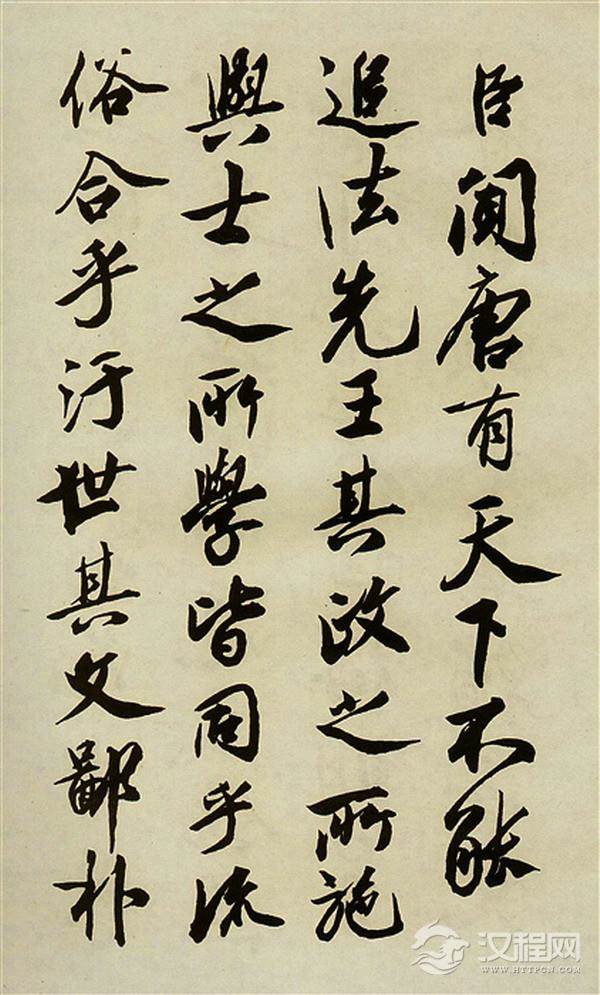 臣闻唐有天下不能
追法先王其政之所施
與士之所學皆同乎流
俗合乎汙世其文鄙朴
汉程网
WWW.HTTPCN.COM